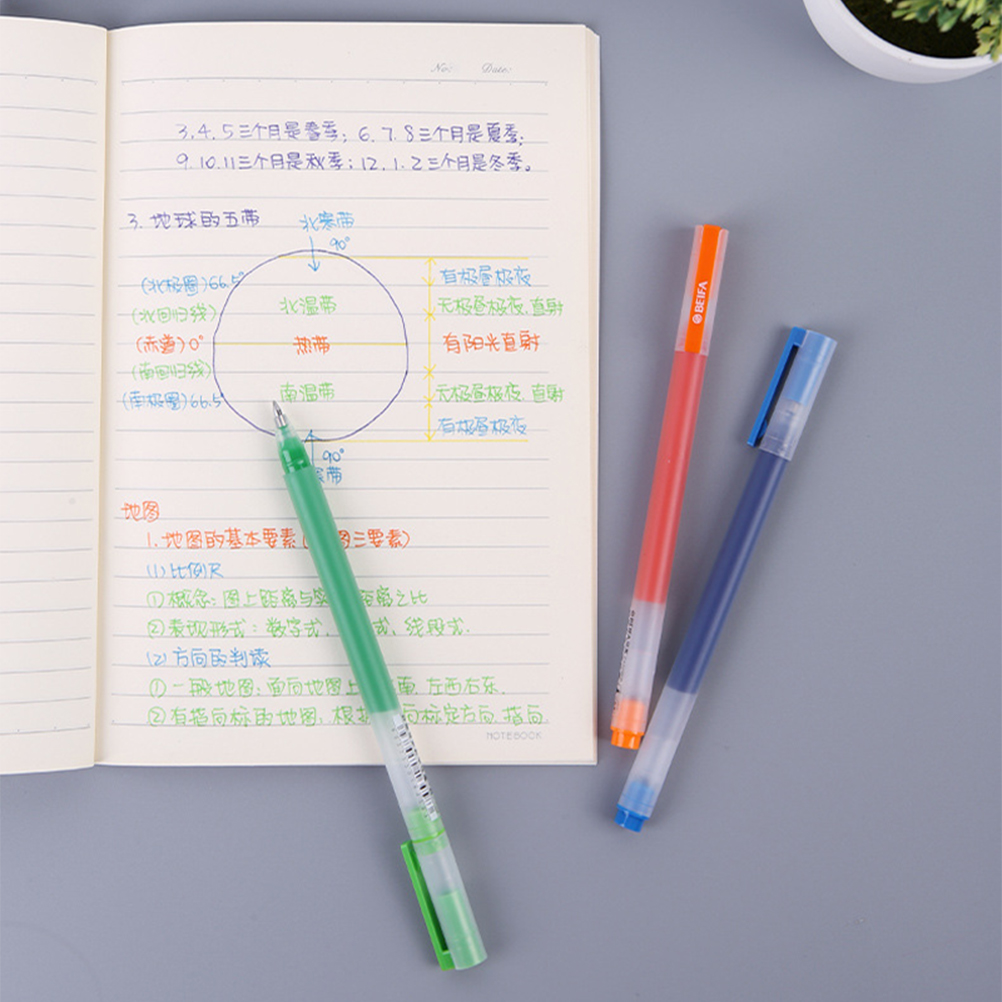 No: Date:
3.4.5三个月是春季; 6.7.8三个月是夏季;
9.10.11三个月是秋季; 12.1.2三个月是冬季。
3. 地球的五带
北寒带
90°
(北极圈)66.5°
有极昼极夜
北温带
无极昼极夜,直射
(北回归线)
(赤道)0°
热带
有阳光直射
(南回归线)
南温带
无极昼极夜,直射
(南极圈)66.5°
有极昼极夜
90°
寒带
地图
1. 地图的基本要素( 图三要素)
(1)比例尺
①概念: 图上距离与实 距离之比
②表现形式: 数字式, 式, 线段式.
(2)方向的判读
①一般地图: 面向地图上 南, 左西右东.
②有指向标的地图, 根据 向标定方向, 指向
NOTEBOOK
BEIFA